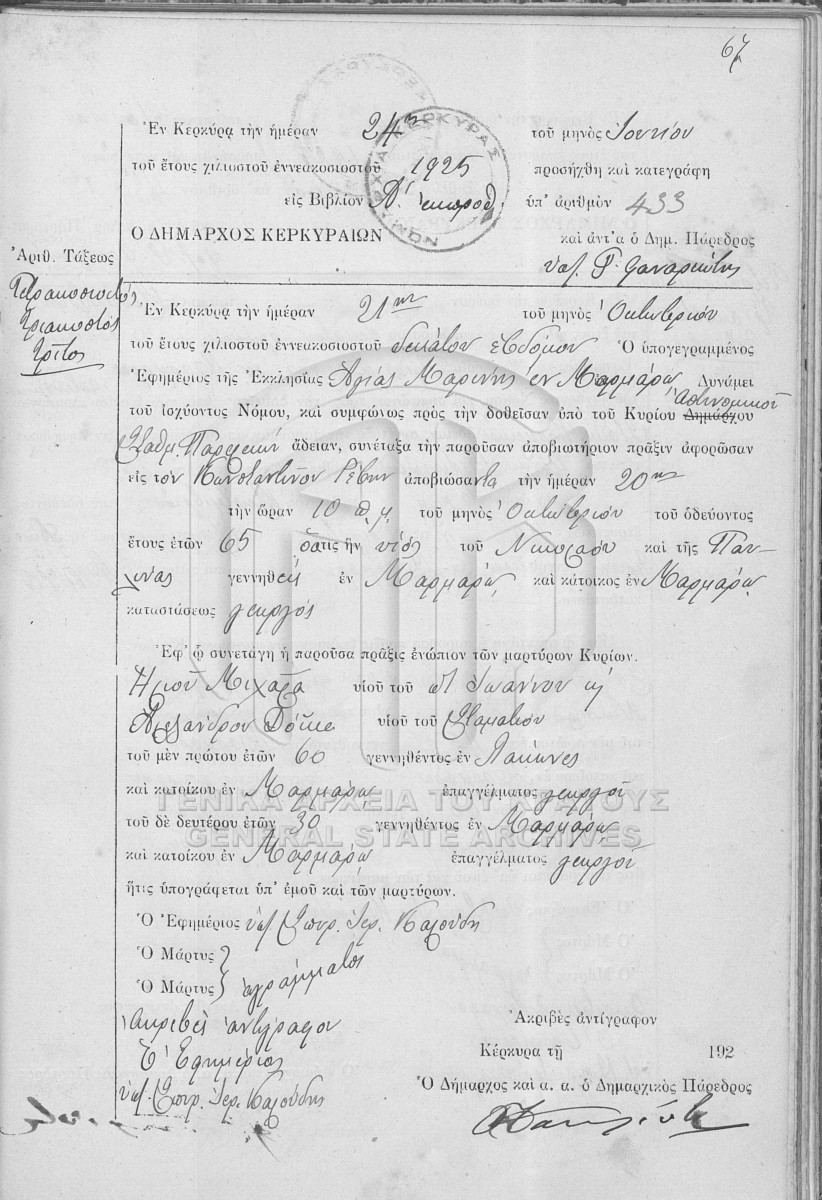 67
Ἐν Κερκύρᾳ τὴν ἡμέραν 24ην τοῦ μηνὸς Ἰουνίου
τοῦ ἔτους χιλιοστοῦ ἐννεακοσιοστοῦ 1925 προσήχθη καὶ κατεγράφη
εἰς Βιβλίον Α΄ ἐκπροθ. ὑπ' ἀριθμὸν 433
Ο ΔΗΜΑΡΧΟΣ ΚΕΡΚΥΡΑΙΩΝ καὶ ἀντ'α ὁ Δημ. Πάρεδρος
ΚΕΡΚΥΡΑΣ
ὑπ. Γ.
Ἀριθ. Τάξεως
Τετρακοσιοστὸς
τριακοστὸς
τρίτος
Ἐν Κερκύρᾳ τὴν ἡμέραν 21ην τοῦ μηνὸς Ὀκτωβρίου
τοῦ ἔτους χιλιοστοῦ ἐννεακοσιοστοῦ δεκάτου ἑβδόμου Ὁ ὑπογεγραμμένος
Ἐφημέριος τῆς Ἐκκλησίας Ἁγίας Μαρίνης ἐν Μαρμάρῳ Δυνάμει
τοῦ ἰσχύοντος Νόμου, καὶ συμφώνως πρὸς τὴν δοθεῖσαν ὑπὸ τοῦ Κυρίου Δημάρχου Ἀστυνομικοῦ
Σταθμ. ἄδειαν, συνέταξα τὴν παροῦσαν ἀποβιωτήριον πρᾶξιν ἀφορῶσαν
εἰς τὸν Κωνσταντῖνον ἀποβιώσαντα τὴν ἡμέραν 20ην
τὴν ὥραν 10 π.μ. τοῦ μηνὸς Ὀκτωβρίου τοῦ ὁδεύοντος
ἔτους ἐτῶν 65 ὅστις ἦν υἱὸς τοῦ Νικολάου καὶ τῆς Παυ-
λίνας γεννηθεὶς ἐν Μαρμάρῳ καὶ κάτοικος ἐν Μαρμάρῳ
καταστάσεως γεωργὸς
Ἐφ' ᾧ συνετάγη ἡ παροῦσα πρᾶξις ἐνώπιον τῶν μαρτύρων Κυρίων.
Μιχαλᾶ υἱοῦ τοῦ Ἰωάννου κ
Ἀλεξάνδρου υἱοῦ τοῦ Σταματίου
τοῦ μὲν πρώτου ἐτῶν 60 γεννηθέντος ἐν Λάκωνες
καὶ κατοίκου ἐν Μαρμάρῳ ἐπαγγέλματος γεωργοῦ
ΓΕΝΙΚΑ ΑΡΧΕΙΑ ΤΟΥ ΚΡΑΤΟΥΣ
τοῦ δὲ δευτέρου ἐτῶν 30 γεννηθέντος ἐν Μαρμάρῳ
GENERAL STATE ARCHIVES
καὶ κατοίκου ἐν Μαρμάρῳ ἐπαγγέλματος γεωργοῦ
ἥτις ὑπογράφεται ὑπ' ἐμοῦ καὶ τῶν μαρτύρων.
Ὁ Ἐφημέριος ὑπ. Σπυρ. Ἱερ. Καλούδης
Ὁ Μάρτυς
Ὁ Μάρτυς ἀγράμματοι
Ἀκριβὲς ἀντίγραφον
Ὁ Ἐφημέριος
ὑπ. Σπυρ. Ἱερ. Καλούδης
Ἀκριβὲς ἀντίγραφον
Κέρκυρα τῇ 192
Ὁ Δήμαρχος καὶ α. α. ὁ Δημαρχικὸς Πάρεδρος